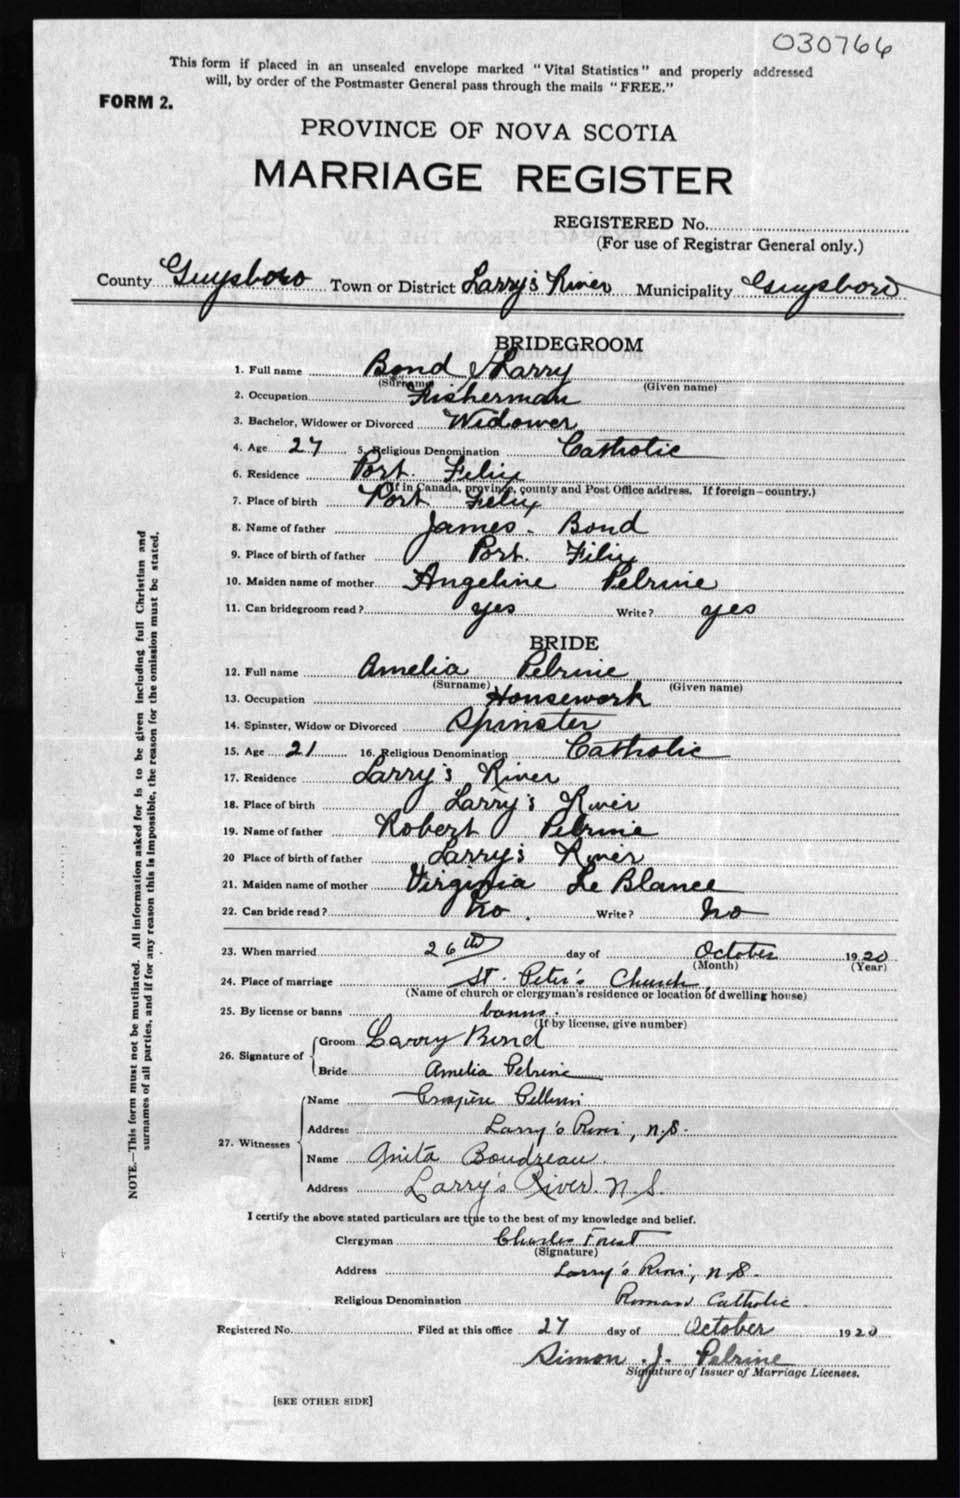 030766
This form if placed in an unsealed envelope marked "Vital Statistics" and properly addressed
will, by order of the Postmaster General pass through the mails "FREE."
FORM 2.
PROVINCE OF NOVA SCOTIA
MARRIAGE REGISTER
REGISTERED No.
(For use of Registrar General only.)
County Guysboro Town or District Larry's River Municipality Guysboro
BRIDEGROOM
1. Full name Bond Harry
(Surname) (Given name)
2. Occupation Fisherman
3. Bachelor, Widower or Divorced Widower
4. Age 27 5. Religious Denomination Catholic
6. Residence Port Felix
(If in Canada, province, county and Post Office address. If foreign—country.)
7. Place of birth Port Felix
8. Name of father James Bond
9. Place of birth of father Port Felix
10. Maiden name of mother Angeline Pelrine
11. Can bridegroom read? yes Write? yes
BRIDE
12. Full name Amelia Pelrine
(Surname) (Given name)
13. Occupation Housework
14. Spinster, Widow or Divorced Spinster
15. Age 21 16. Religious Denomination Catholic
17. Residence Larry's River
18. Place of birth Larry's River
19. Name of father Robert Pelrine
20 Place of birth of father Larry's River
21. Maiden name of mother Virginia Le Blance
22. Can bride read? No. Write? No
23. When married 26th day of October 1920
(Month) (Year)
24. Place of marriage St. Peter's Church
(Name of church or clergyman's residence or location of dwelling house)
25. By license or banns banns.
(If by license, give number)
26. Signature of Groom Larry Bond
Bride Amelia Pelrine
27. Witnesses Name
Address Larry's River, N.S.
Name Anita Boudreau.
Address Larry's River. N.S.
I certify the above stated particulars are true to the best of my knowledge and belief.
Clergyman Charles Forest
(Signature)
Address Larry's River, N.S.
Religious Denomination Roman Catholic.
Registered No. Filed at this office 27 day of October 1920
Simon J. Pelrine
Signature of Issuer of Marriage Licenses.
[SEE OTHER SIDE]
NOTE.—This form must not be mutilated. All information asked for is to be given including full Christian and
surnames of all parties, and if for any reason this is impossible, the reason for the omission must be stated.